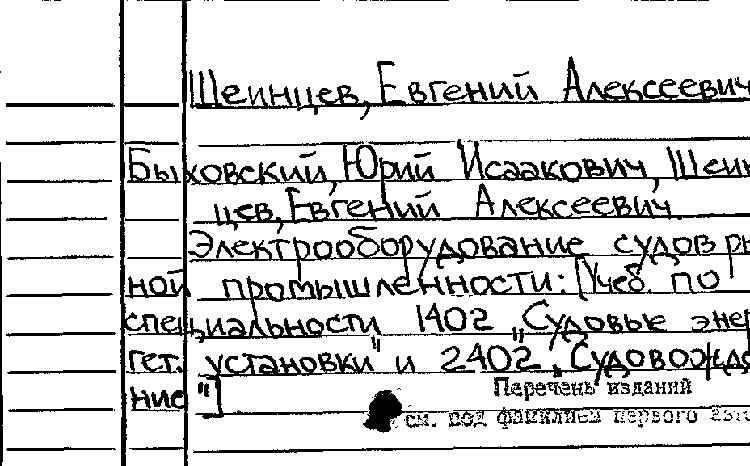 Шеинцев, Евгений Алексеевич
Быховский, Юрий Исаакович, Шеин
цев, Евгений Алексеевич.
Электрооборудование судов ры
ной промышленности: [Учеб. по
специальности 1402 „Судовые энер
гет. установки" и 2402 „Судовожде
ние"]
Перечень изданий
см. под фамилией первого авто